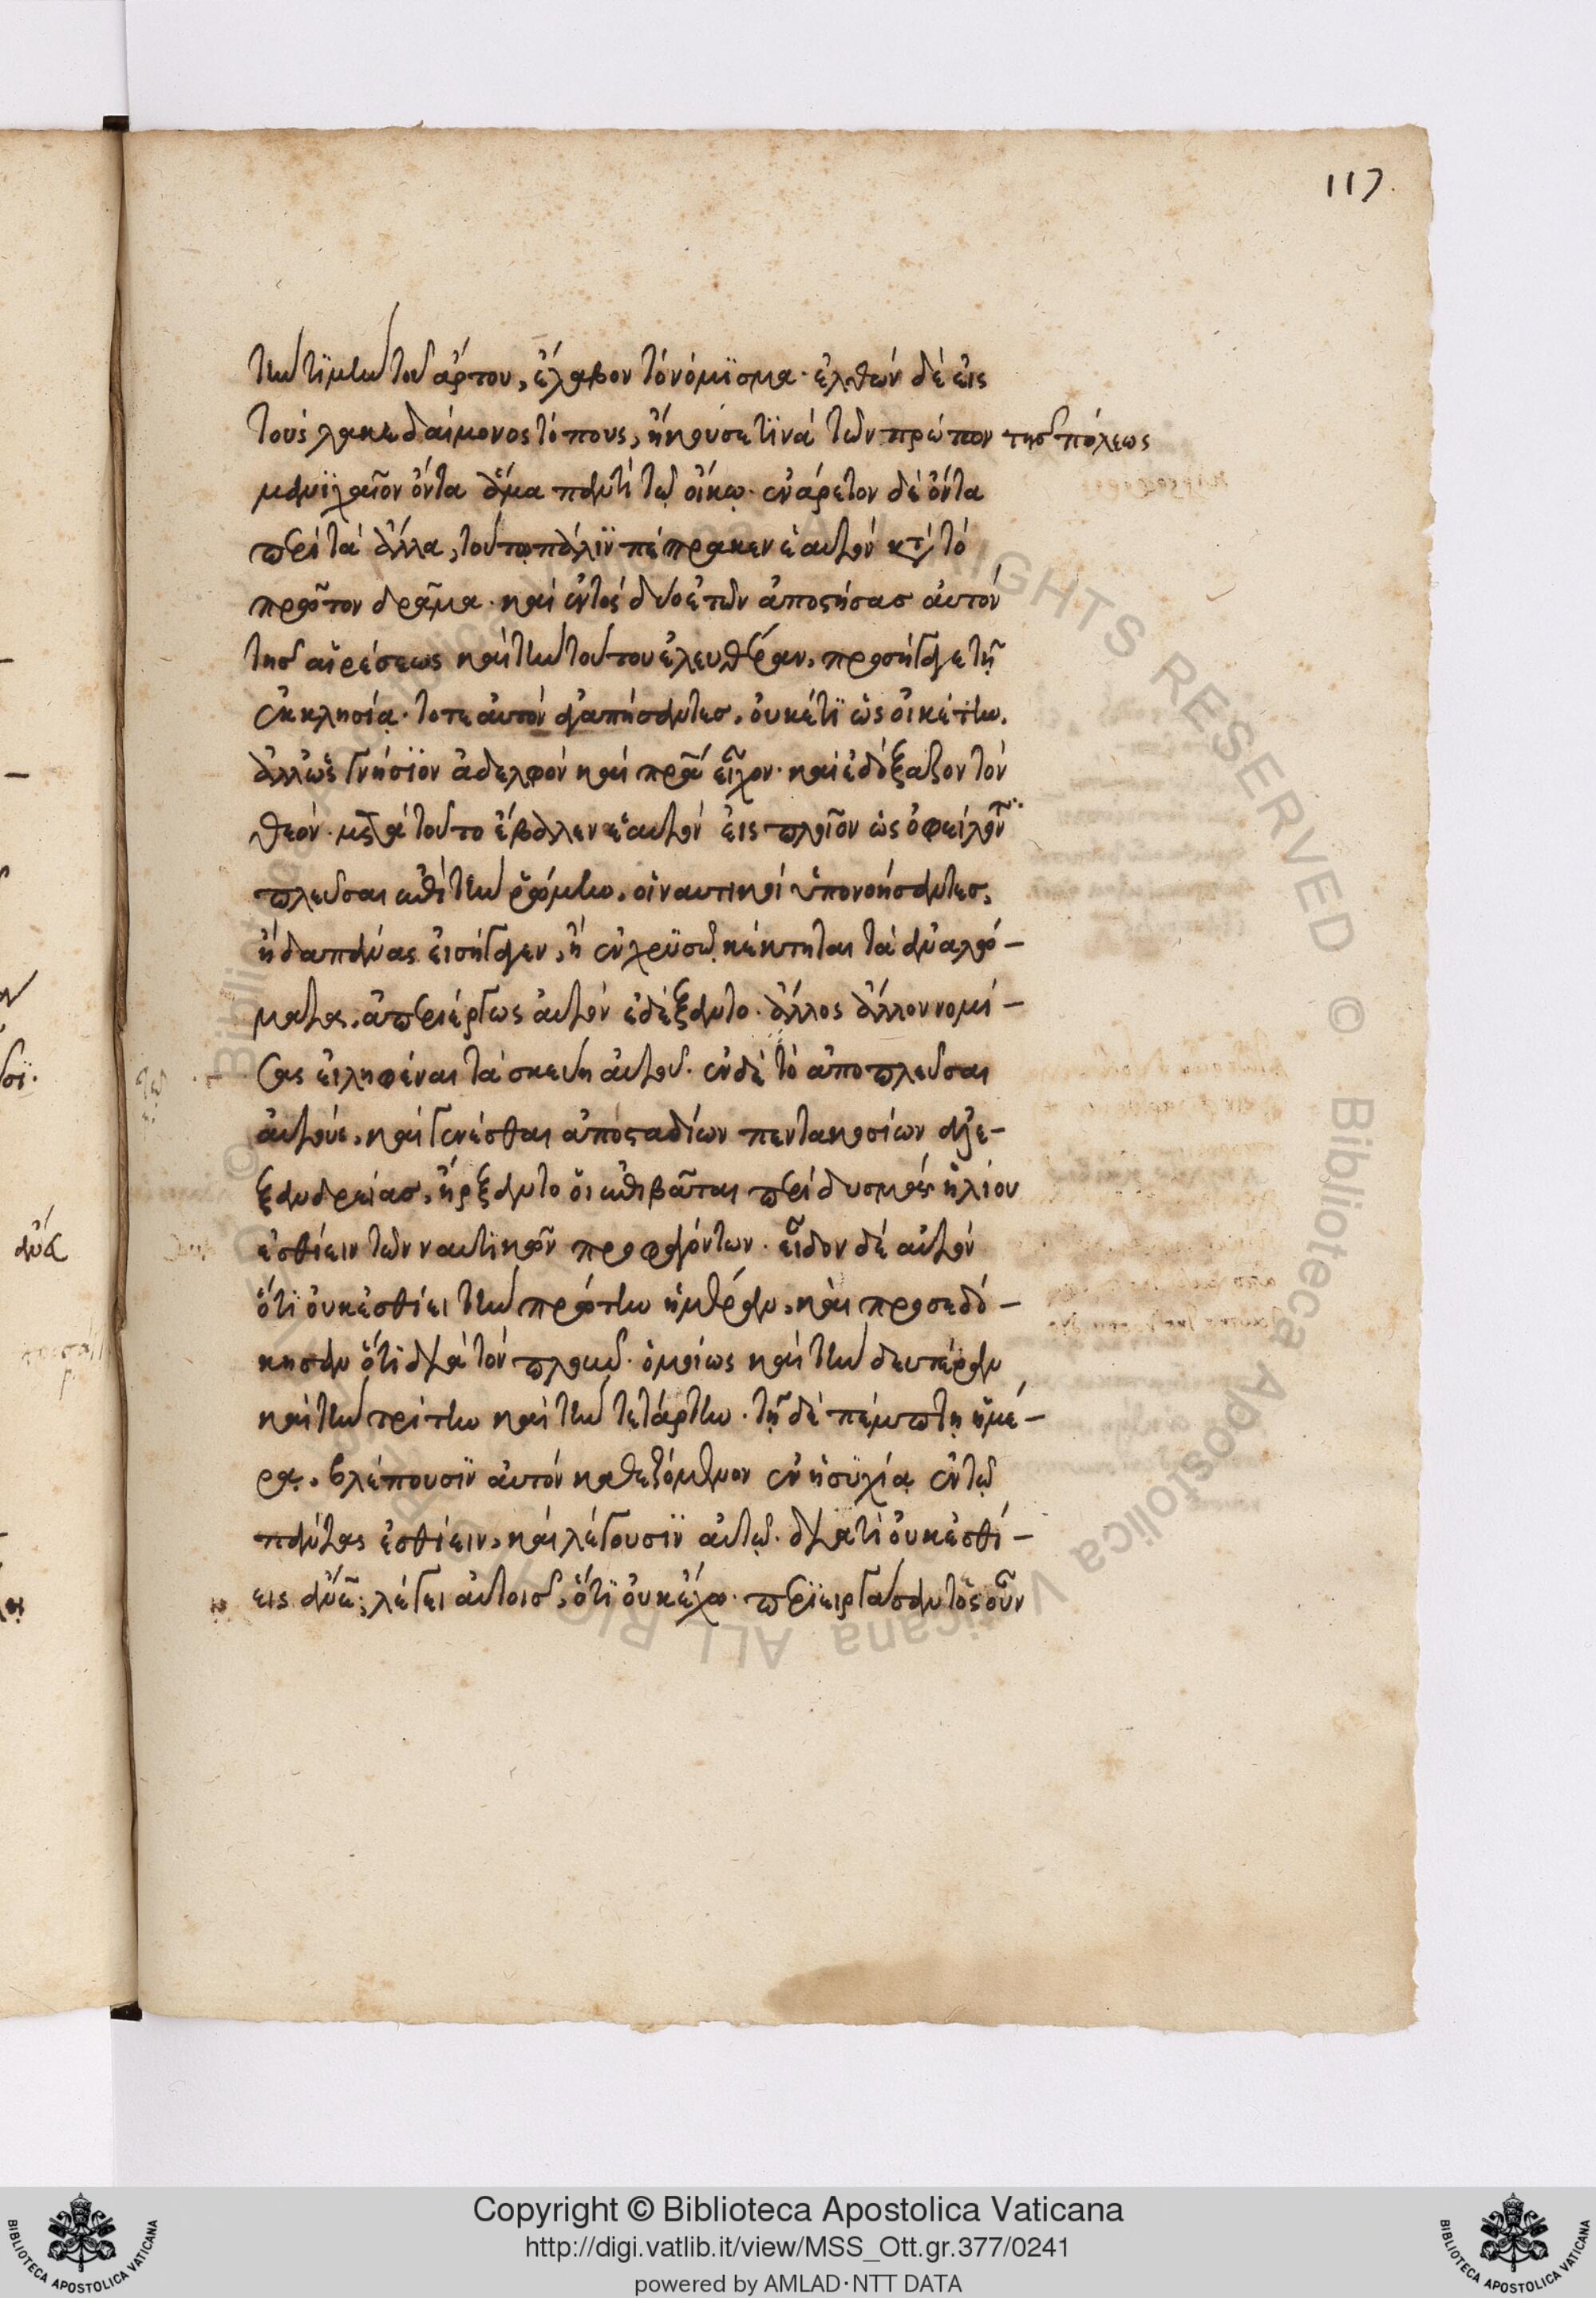 117
τὴν τϊμὴν τοῦ ἄρτου, ἔλαβον τὸ νόμϊσμα· ἐλθὼν δὲ εἰς
τοὺς λακεδαίμονος τόπους, ἤκουσε τϊνὰ τῶν πρώτον τῆς πόλεως
μανϊχαῖον ὄντα ἅμα παντὶ τῷ οἴκῳ· ἐνάρετον δὲ ὄντα
περὶ τὰ ἄλλα, τούτῳ πάλϊν πέπρακεν ἑαυτὸν κτ τὸ
πρῶτον δρᾶμα· καὶ ἐντὸς δύο ἐτῶν ἀποστήσας αὐτὸν
τῆς αἱρέσεως καὶ τὴν τούτου ἐλευθέραν, προσήγαγε τῇ
ἐκκλησίᾳ· τότε αὐτὸν ἀγαπήσαντες, οὐκέτϊ ὡς οἰκέτην,
ἀλλ' ὡς γνήσϊον ἀδελφὸν καὶ πρα εἶχον· καὶ ἐδόξαζον τὸν
θεόν· μετὰ τοῦτο ἔβαλλεν ἑαυτὸν εἰς πλοῖον ὡς ὀφείλων
πλεῦσαι ἐπὶ τὴν ῥώμην, οἱ ναυτικοὶ ὑπονοήσαντες,
ἢ δαπάνας εἰσήγαγεν, ἢ ἐν χρϋσῷ κέκτηται τὰ ἀναλώ-
ματα, ἀπεριέργως αὐτὸν ἐδέξαντο· ἄλλος ἄλλον νομί-
σας εἰληφέναι τὰ σκεύη αὐτοῦ· ἐν δὲ τὸ ἀποπλεῦσαι
αὐτοὺς, καὶ γενέσθαι ἀπὸ σταδίων πεντακοσίων ἀλε-
ξανδρείας, ἤρξαντο οἱ ἐπιβᾶται περὶ δυσμὰς ἡλίου
ἐσθίειν τῶν ναυτικῶν προφαγόντων· εἶδον δὲ αὐτὸν
ὅτϊ οὐκ ἐσθίει τὴν πρώτην ἡμέραν, καὶ προσεδό-
κησαν ὅτϊ διὰ τὸν πλοῦν· ὁμοίως καὶ τὴν δευτέραν
καὶ τὴν τρίτην καὶ τὴν τετάρτην· τῇ δὲ πέμπτῃ ἡμέ-
ρᾳ, βλέπουσϊν αὐτὸν καθεζόμενον ἐν ἡσϋχίᾳ ἐν τῷ
πάντας ἐσθίειν, καὶ λέγουσϊν αὐτῷ· διὰ τί οὐκ ἐσθί-
εις ἄνε; λέγει αὐτοῖς, ὅτϊ οὐκ ἔχω· περϊειργάσαντο οὖν
Copyright © Biblioteca Apostolica Vaticana
http://digi.vatlib.it/view/MSS_Ott.gr.377/0241
powered by AMLAD·NTT DATA
BIBLIOTECA APOSTOLICA VATICANA
BIBLIOTECA APOSTOLICA VATICANA